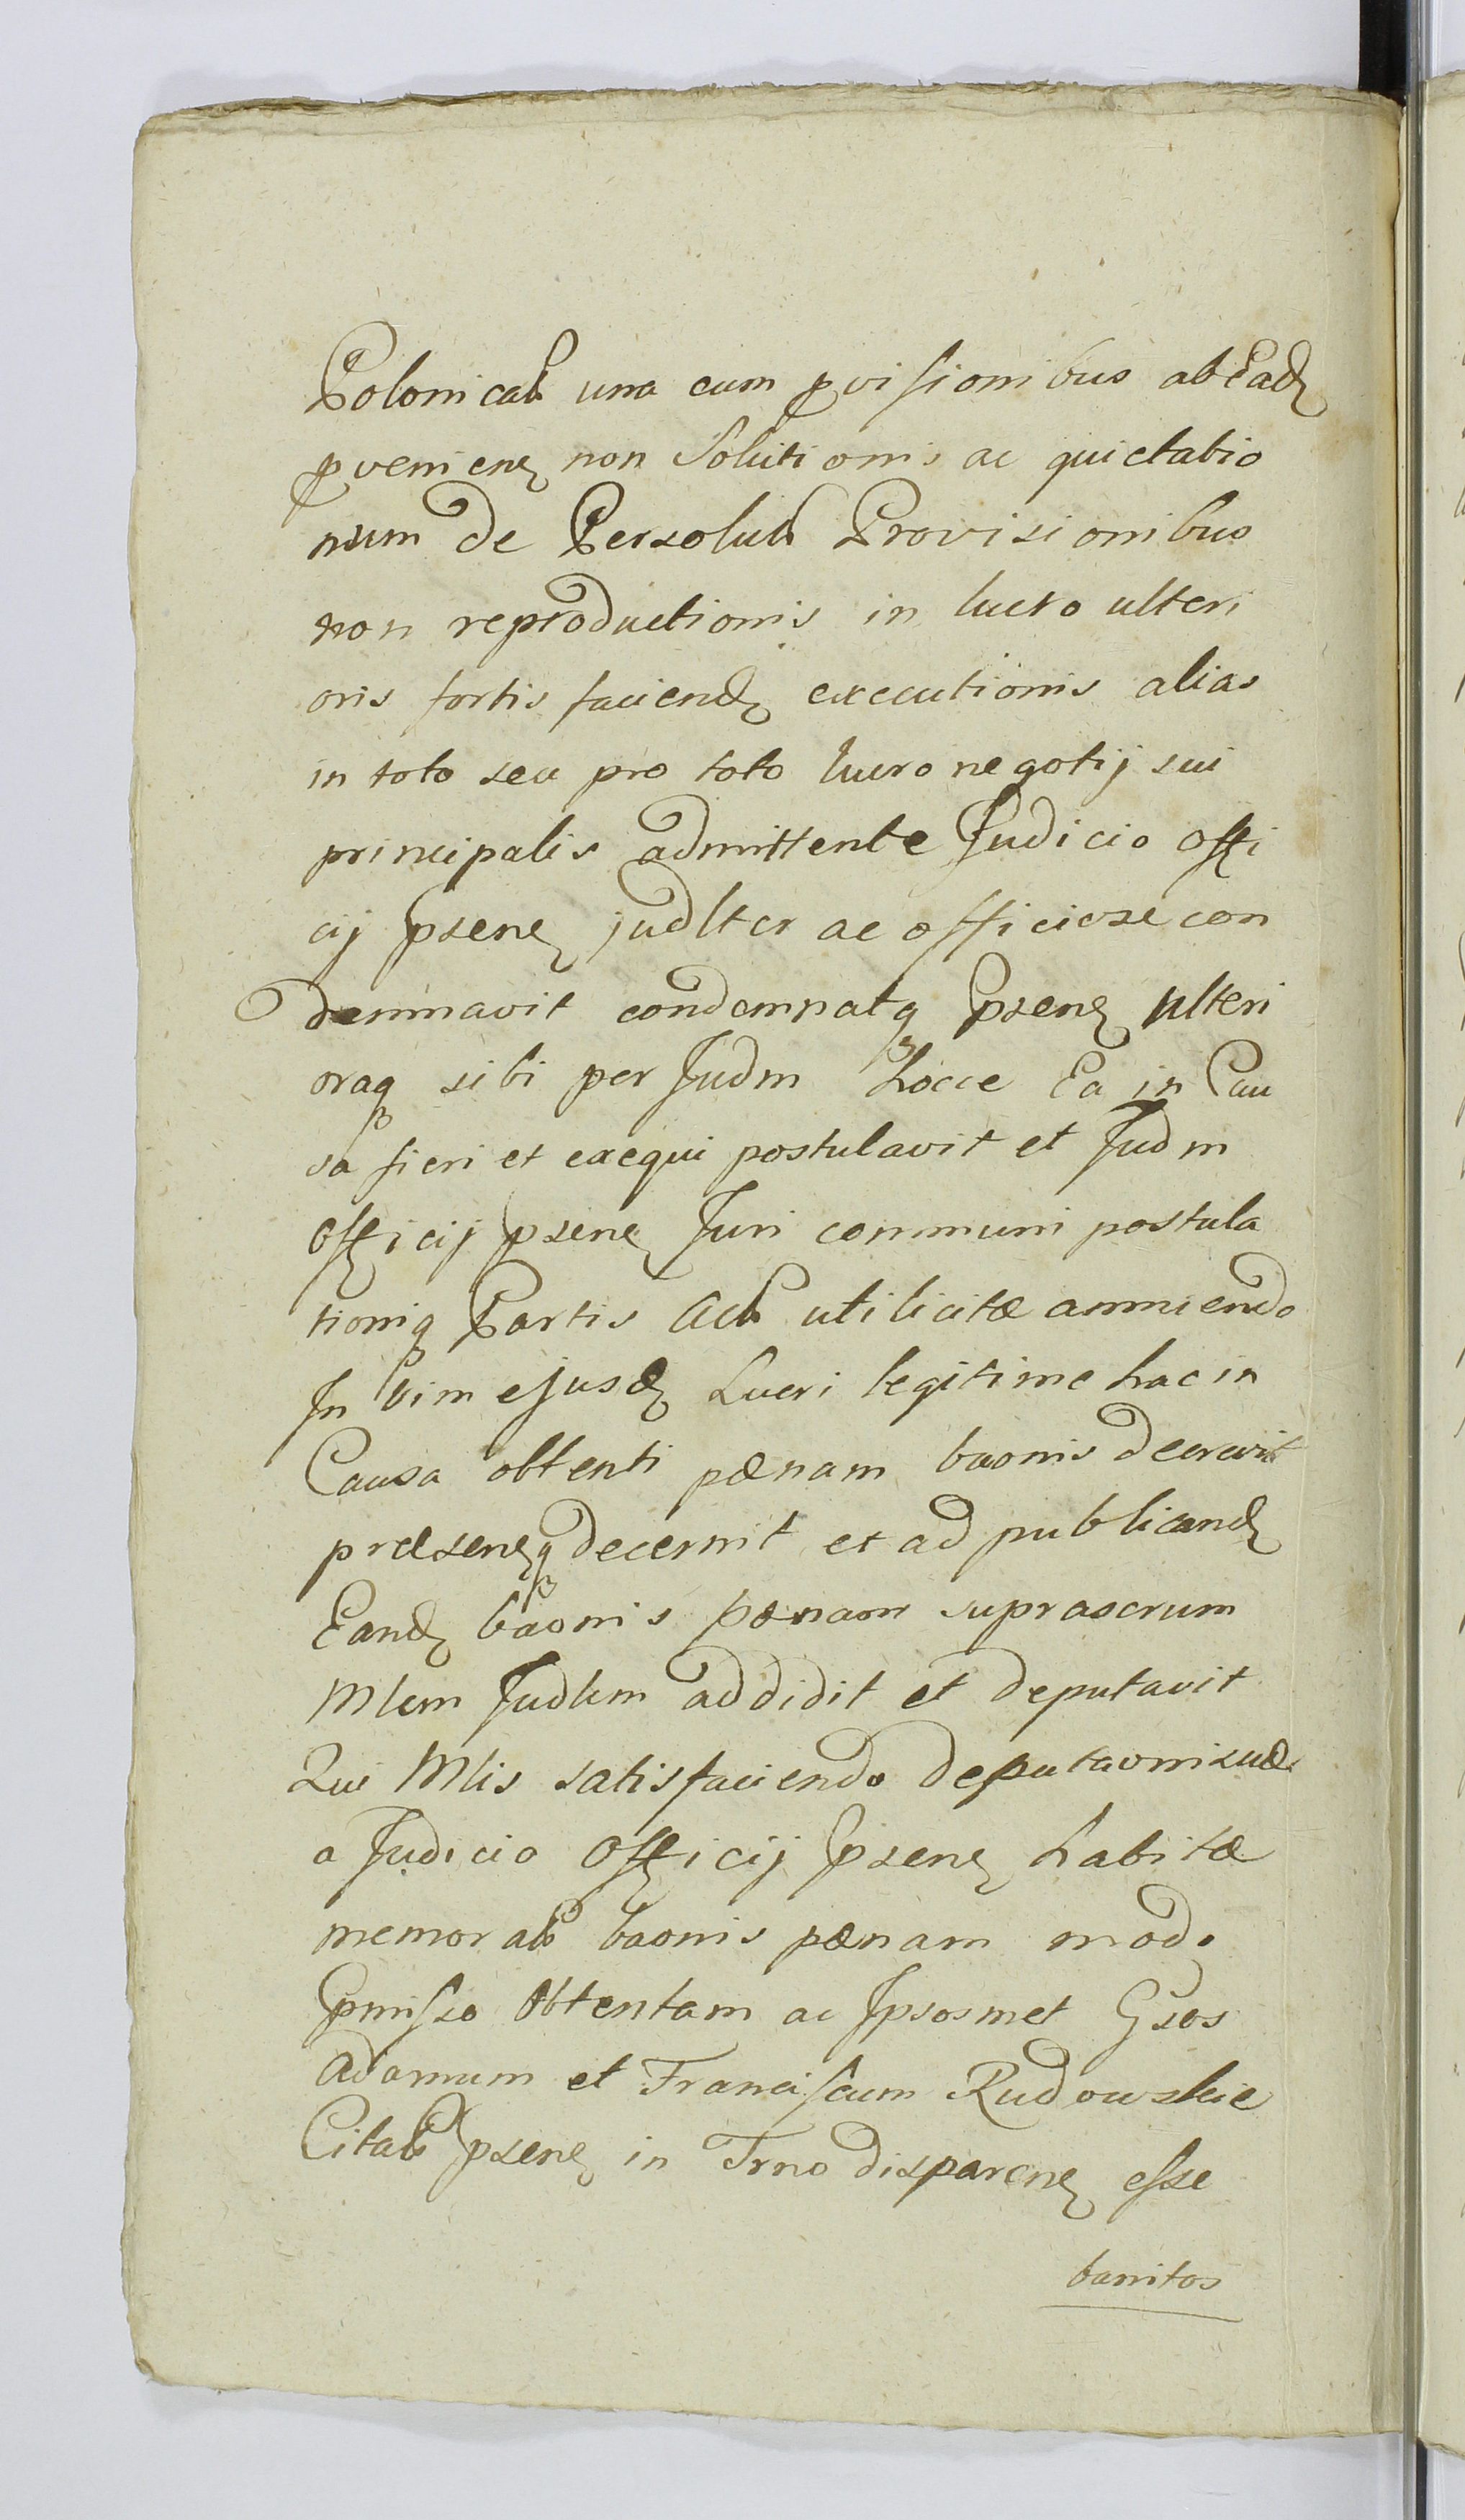 Polonical una cum pvisionibus ab Ead
pvenien non Solutionis ac quietatio
num de Persolut Provisionibus
non reproductionis in lucro ulteri
oris fortis faciend executionis alias
in toto seu pro toto lucro negotij sui
principalis admittente Judicio Offi
cij psen judlter ac officiose con
demnavit condemnatq psen ulteri
oraq sibi per Judm Locce Ea in Cau
sa fieri et exequi postulavit et Judm
Officij psen Juri communi postula
tioniq Partis Act utilicitæ annuendo
In vim ejusd Lucri legitime hac in
Causa obtenti pænam baonis decrevit
præsenq decernit et ad publicand
Eand baonis pænam suprascrum
Mlem Judlem addidit et deputavit
Qui Mlis satisfaciendo deputaoni suæ
a Judicio Officij psen habitæ
memorat baonis pænam modo
pmisso Obtentam ac Ipsosmet Gsos
Adamum et Franciscum Rudowskie
Citat psen in Trno disparen esse
banitos